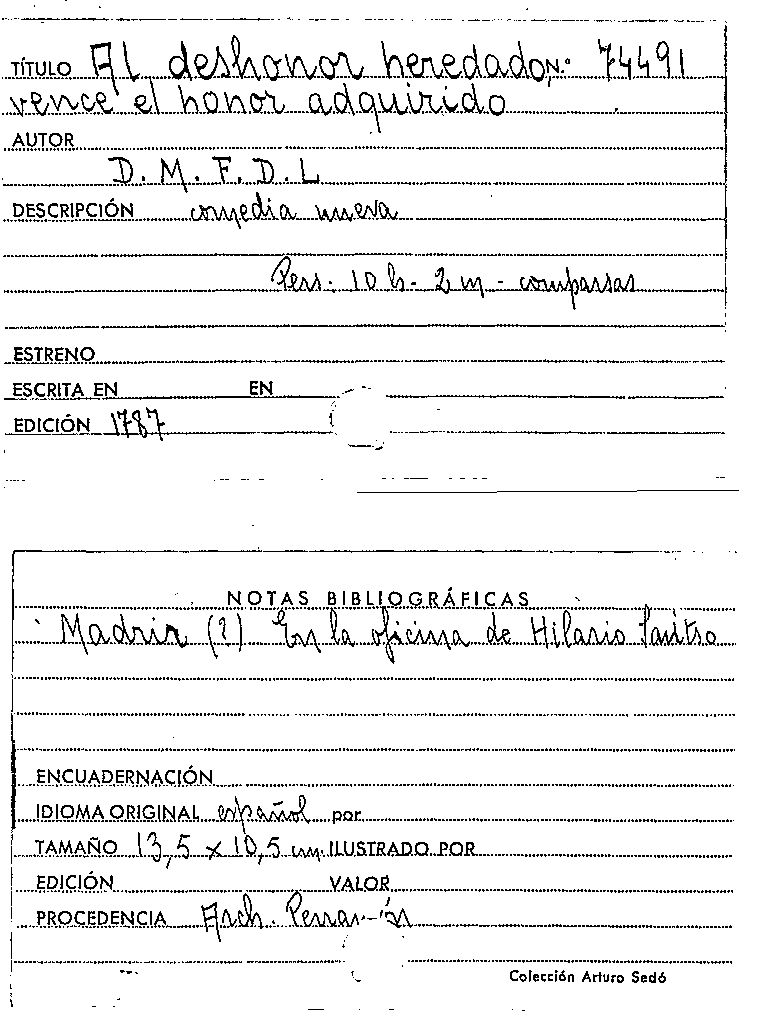 TÍTULO Al deshonor heredado, N.º 74491
vence el honor adquirido
AUTOR
D. M. F. D. L
DESCRIPCIÓN comedia nueva
Pers. 10 h. - 2 m - comparsas
ESTRENO
ESCRITA EN EN
EDICIÓN 1787
NOTAS BIBLIOGRÁFICAS
Madrid (?) En la oficina de Hilario
ENCUADERNACIÓN
IDIOMA ORIGINAL español por
TAMAÑO 13,5 x 10,5 cm. ILUSTRADO POR
EDICIÓN VALOR
PROCEDENCIA Arch.
Colección Arturo Sedó